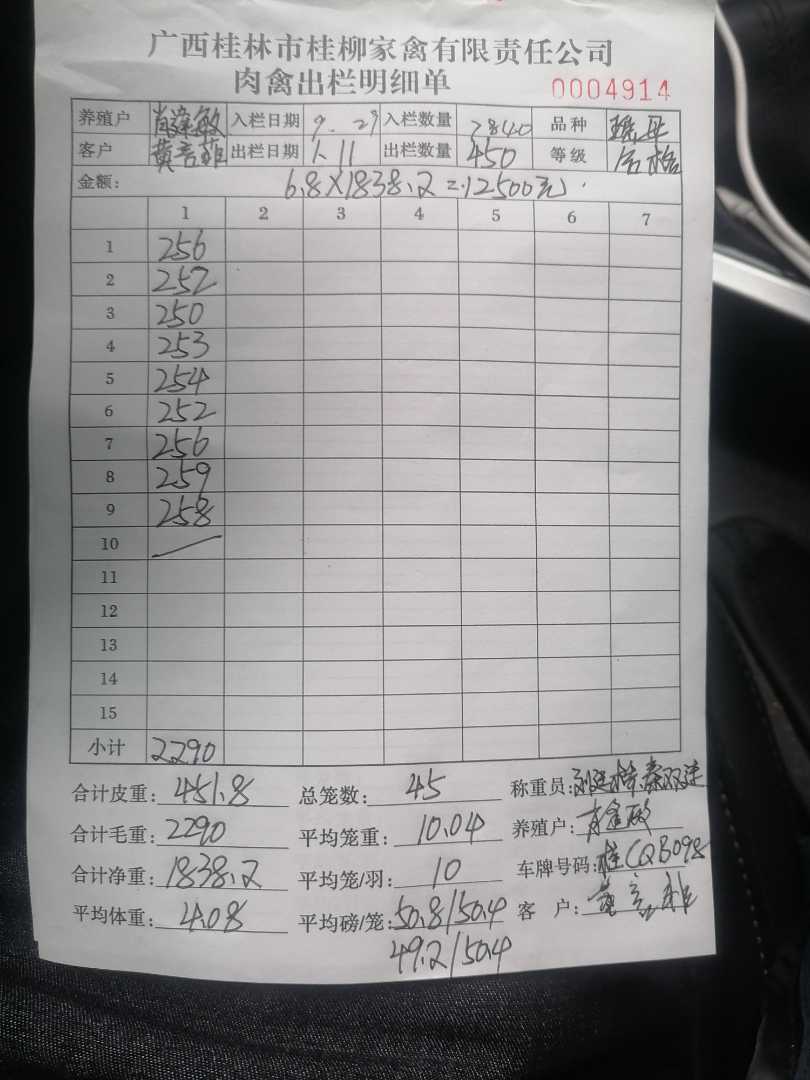 广西桂林市桂柳家禽有限责任公司
肉禽出栏明细单 0004914
养殖户 入栏日期 9.29 入栏数量 2840 品种
客户 出栏日期 1.11 出栏数量 450 等级 合格
金额: 6.8×1838.2=12500元
1 2 3 4 5 6 7
1 256
2 252
3 250
4 253
5 254
6 252
7 256
8 259
9 258
10
11
12
13
14
15
小计 2290
合计皮重: 451.8 总笼数: 45 称重员:
合计毛重: 2290 平均笼重: 10.04 养殖户:
合计净重: 1838.2 平均笼/羽: 10 车牌号码: 桂CQB098
平均体重: 4.08 平均磅/笼: 50.8/50.4 客户:
49.2/50.4